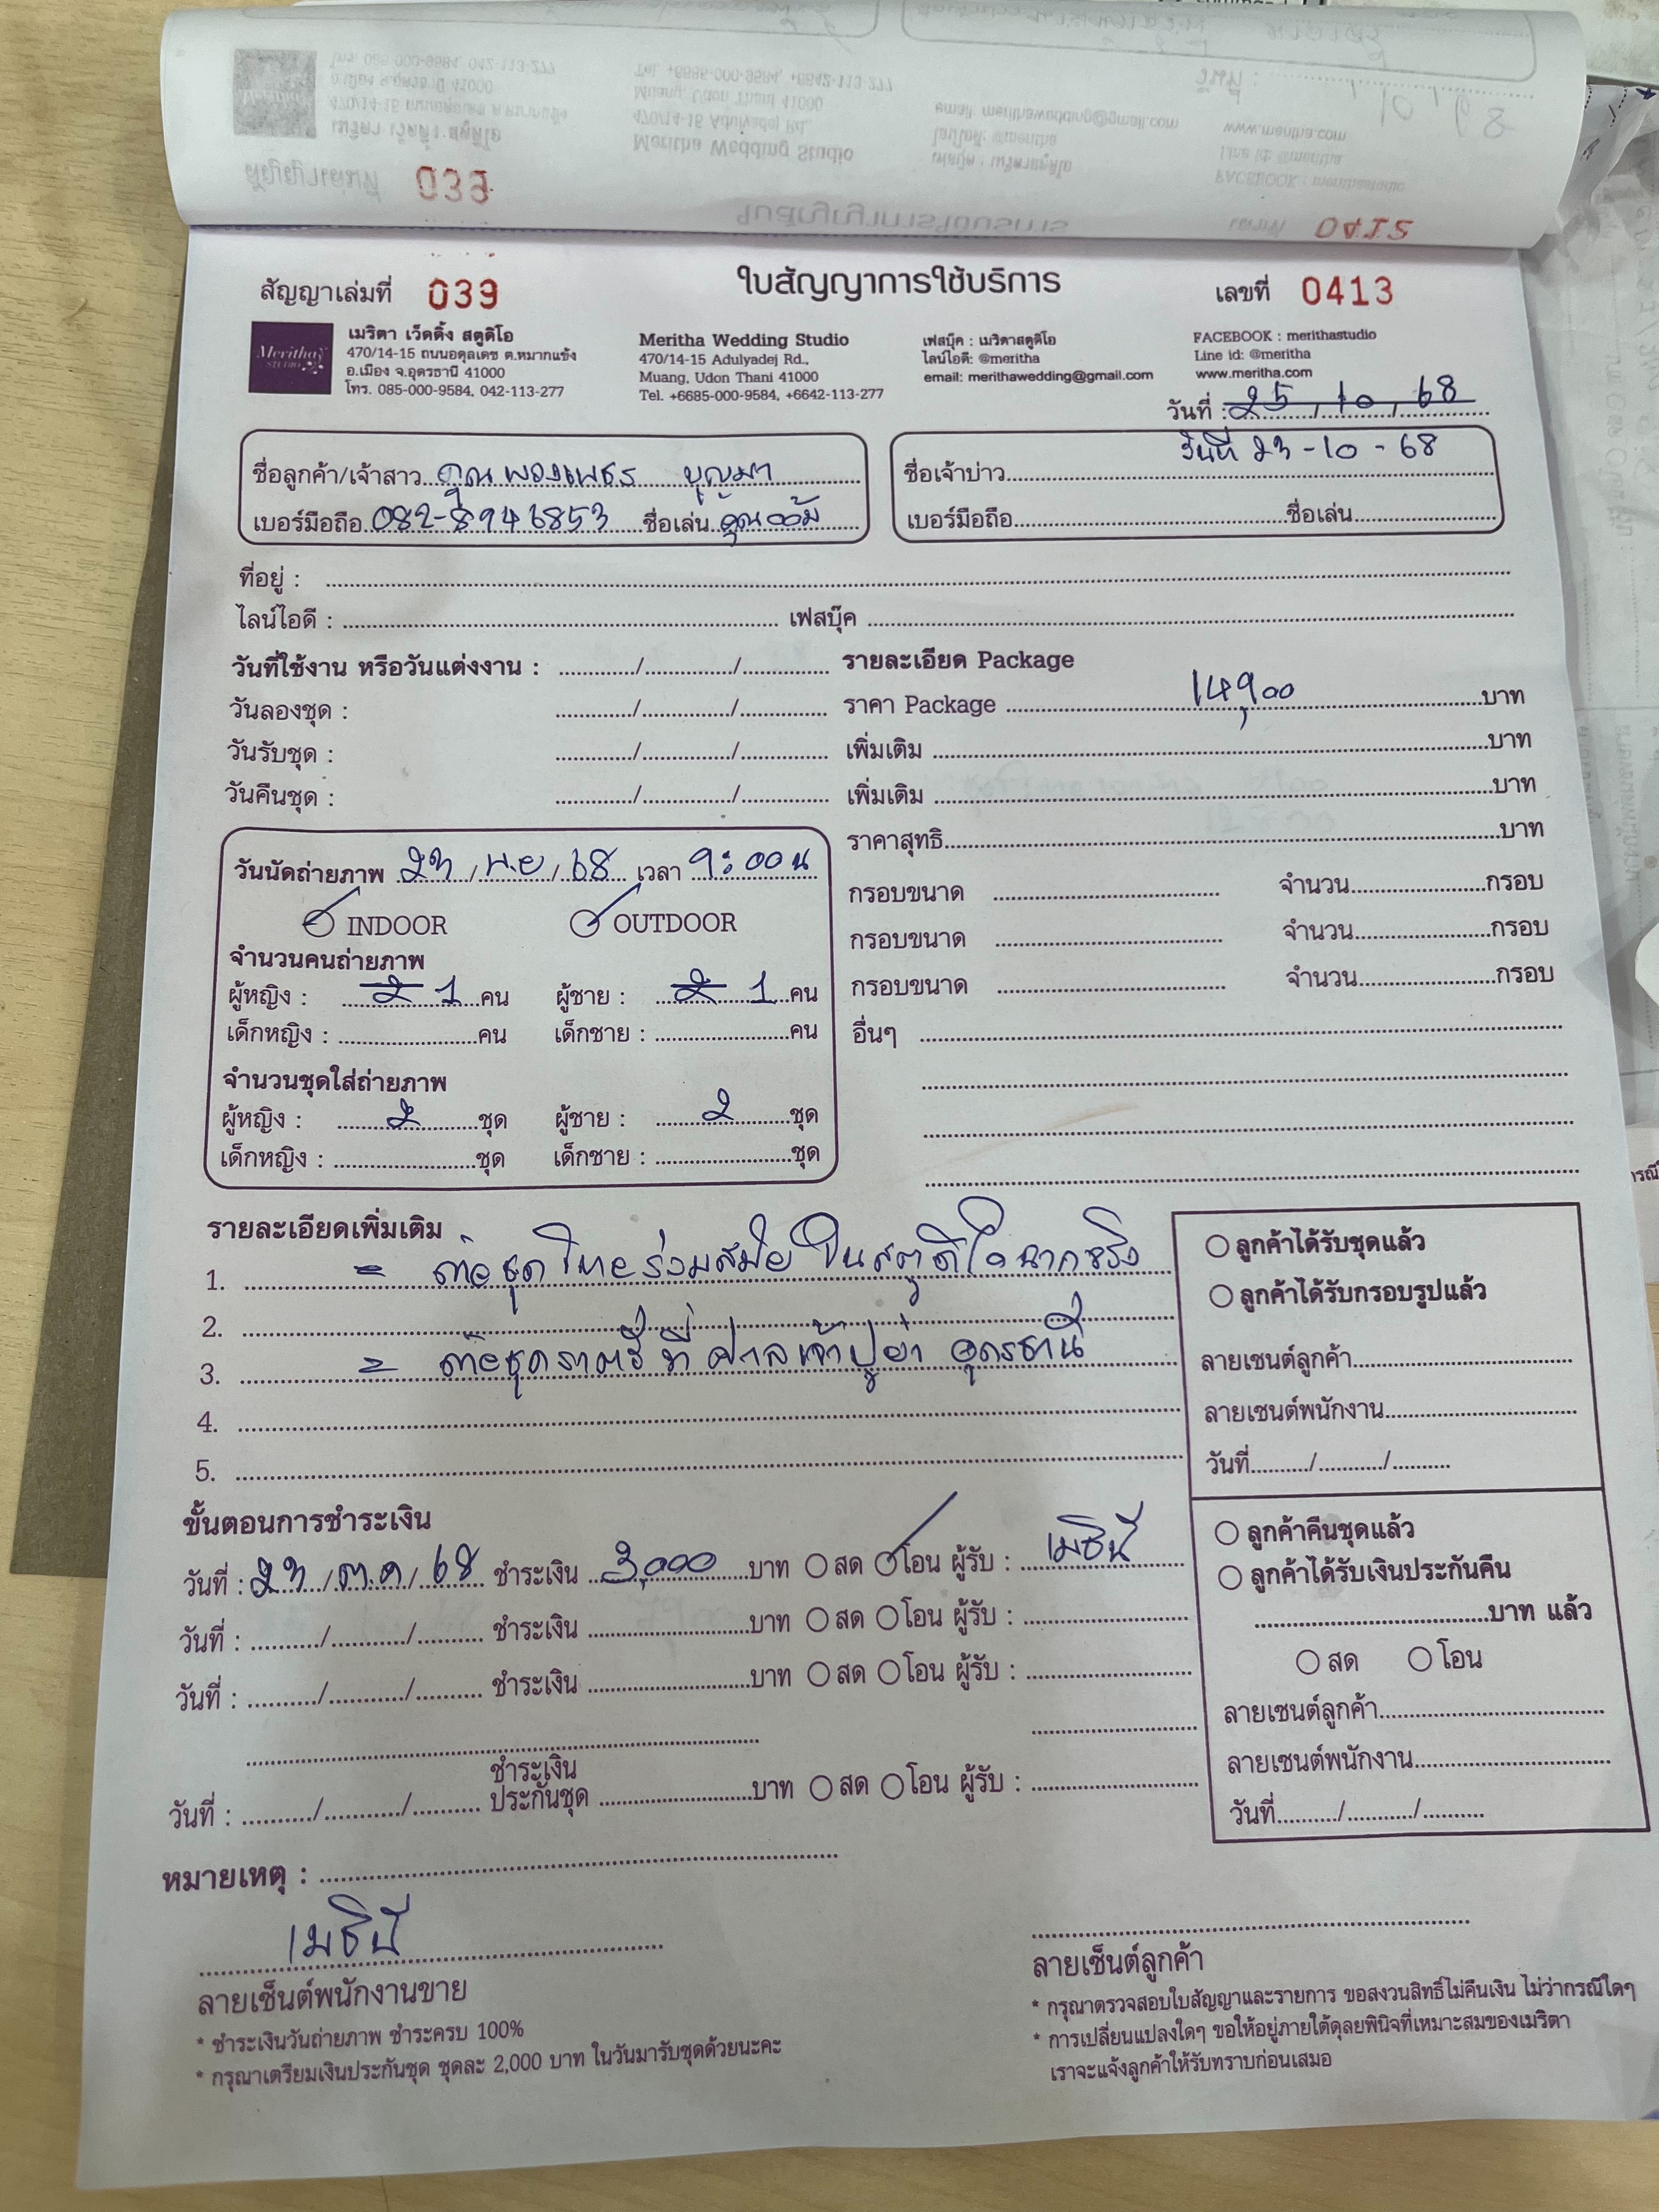 สัญญาเล่มที่ 039
ใบสัญญาการใช้บริการ
เลขที่ 0413
Meritha STUDIO
เมริตา เว็ดดิ้ง สตูดิโอ
470/14-15 ถนนอดุลเดช ต.หมากแข้ง
อ.เมือง จ.อุดรธานี 41000
โทร. 085-000-9584, 042-113-277
Meritha Wedding Studio
470/14-15 Adulyadej Rd.,
Muang, Udon Thani 41000
Tel. +6685-000-9584, +6642-113-277
เฟสบุ๊ค : เมริตาสตูดิโอ
ไลน์ไอดี: @meritha
email: merithawedding@gmail.com
FACEBOOK : merithastudio
Line id: @meritha
www.meritha.com
วันที่ : 25 / 10 / 68
วันที่ 23 - 10 - 68
ชื่อลูกค้า/เจ้าสาว คุณพวงเพชร บุญมา
เบอร์มือถือ 082-8946853 ชื่อเล่น คุณอ้อม
ชื่อเจ้าบ่าว
เบอร์มือถือ ชื่อเล่น
ที่อยู่ :
ไลน์ไอดี : เฟสบุ๊ค
วันที่ใช้งาน หรือวันแต่งงาน : / /
วันลองชุด : / /
วันรับชุด : / /
วันคืนชุด : / /
รายละเอียด Package
ราคา Package 14,900 บาท
เพิ่มเติม บาท
เพิ่มเติม บาท
ราคาสุทธิ บาท
กรอบขนาด จำนวน กรอบ
กรอบขนาด จำนวน กรอบ
กรอบขนาด จำนวน กรอบ
อื่นๆ
วันนัดถ่ายภาพ 23 / พ.ย / 68 เวลา 9:00 น
INDOOR OUTDOOR
จำนวนคนถ่ายภาพ
ผู้หญิง : 2 1 คน ผู้ชาย : 2 1 คน
เด็กหญิง : คน เด็กชาย : คน
จำนวนชุดใส่ถ่ายภาพ
ผู้หญิง : 2 ชุด ผู้ชาย : 2 ชุด
เด็กหญิง : ชุด เด็กชาย : ชุด
รายละเอียดเพิ่มเติม
1. = ถ่ายชุดไทยร่วมสมัย ในสตูดิโอฉากจริง
2.
3. = ถ่ายชุดราตรี ที่ ศาลเจ้าปู่ย่า อุดรธานี
4.
5.
ลูกค้าได้รับชุดแล้ว
ลูกค้าได้รับกรอบรูปแล้ว
ลายเซนต์ลูกค้า
ลายเซนต์พนักงาน
วันที่ / /
ขั้นตอนการชำระเงิน
วันที่ : 23 / ต.ค / 68 ชำระเงิน 3,000 บาท สด โอน ผู้รับ : เมธินี
วันที่ : / / ชำระเงิน บาท สด โอน ผู้รับ :
วันที่ : / / ชำระเงิน บาท สด โอน ผู้รับ :
วันที่ : / / ชำระเงินประกันชุด บาท สด โอน ผู้รับ :
ลูกค้าคืนชุดแล้ว
ลูกค้าได้รับเงินประกันคืน
บาท แล้ว
สด โอน
ลายเซนต์ลูกค้า
ลายเซนต์พนักงาน
วันที่ / /
หมายเหตุ :
เมธินี
ลายเซ็นต์พนักงานขาย
* ชำระเงินวันถ่ายภาพ ชำระครบ 100%
* กรุณาเตรียมเงินประกันชุด ชุดละ 2,000 บาท ในวันมารับชุดด้วยนะคะ
ลายเซ็นต์ลูกค้า
* กรุณาตรวจสอบใบสัญญาและรายการ ขอสงวนสิทธิ์ไม่คืนเงิน ไม่ว่ากรณีใดๆ
* การเปลี่ยนแปลงใดๆ ขอให้อยู่ภายใต้ดุลยพินิจที่เหมาะสมของเมริตา
เราจะแจ้งลูกค้าให้รับทราบก่อนเสมอ